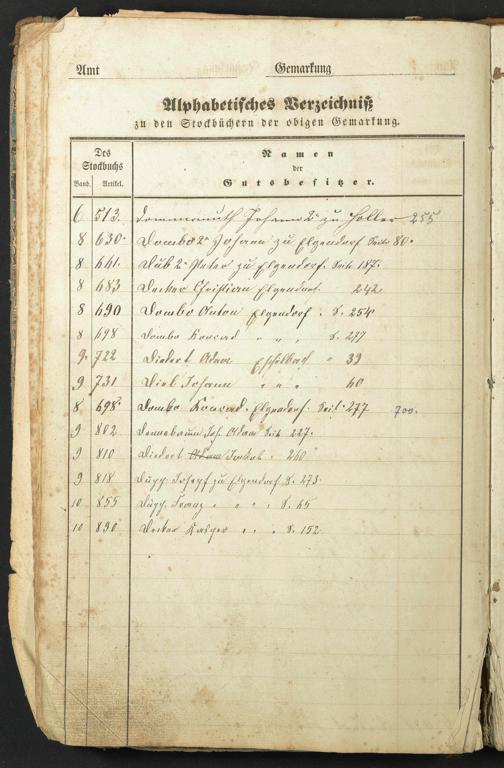 Amt Gemarkung
Alphabetisches Verzeichniß
zu den Stockbüchern der obigen Gemarkung.
Des Stockbuchs
Band. Artikel.
Namen
der
Gutsbesitzer.
6 513. Dommermuth Johann 2r zu Höller 255
8 630. Dombo 2r Johann zu Elgendorf Seite 80.
8 661. Dub 2r Peter zu Elgendorf. Seite 187.
8 683 Decker Christian Elgendorf. 242
8 690 Dombo Anton Elgendorf. S. 254
8 698 Dombo Konrad " " , S. 277
9. 722 Diedert Adam Eschelbach " 39
9 731 Diel Johann " " " 60
8 698. Dombo Konrad. Elgendorf. Seite 277 700.
9 802 Dannebaum Joh. Adam Seite 227.
9 810 Diedert Adam Jakob . 260
9 818 Joseph zu Elgendorf S. 273.
10 855 Franz " " " S. 65
10 890 Decker Kaspar " " . S. 152